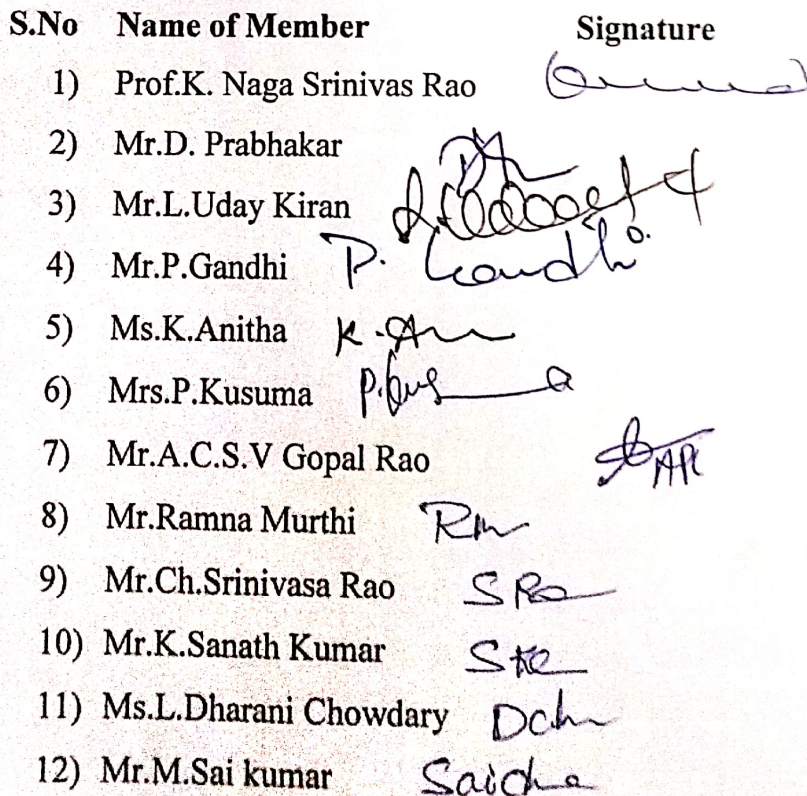 S.No Name of Member Signature
1) Prof.K. Naga Srinivas Rao
2) Mr.D. Prabhakar
3) Mr.L.Uday Kiran
4) Mr.P.Gandhi P. Gandhi
5) Ms.K.Anitha
6) Mrs.P.Kusuma
7) Mr.A.C.S.V Gopal Rao
8) Mr.Ramna Murthi
9) Mr.Ch.Srinivasa Rao
10) Mr.K.Sanath Kumar
11) Ms.L.Dharani Chowdary
12) Mr.M.Sai kumar